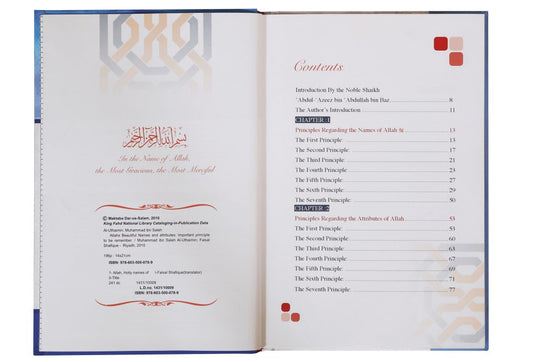 بسم الله الرحمن الرحيم
In the Name of Allah,
the Most Gracious, the Most Merciful
© Maktaba Dar-us-Salam, 2010
King Fahd National Library Cataloging-in-Publication Data
Al-Uthaimin, Muhammad bin Saleh
Allah's Beautiful Names and attributes: important principle
to be remember. / Muhammad bin Saleh Al-Uthaimin; Faisal
Shafique - Riyadh, 2010
196p 14x21cm
ISBN: 978-603-500-078-9
1- Allah, Holy names of I-Faisal Shafique(translation)
II-Title
241 dc 1431/10009
L.D.no. 1431/10009
ISBN: 978-603-500-078-9
Contents
Introduction By the Noble Shaikh
'Abdul-'Azeez bin 'Abdullah bin Baz 8
The Author's Introduction 11
CHAPTER :1
Principles Regarding the Names of Allah ﷻ 13
The First Principle 13
The Second Principle 17
The Third Principle 21
The Fourth Principle 23
The Fifth Principle 27
The Sixth Principle 29
The Seventh Principle 50
CHAPTER 2
Principles Regarding the Attributes of Allah 53
The First Principle 53
The Second Principle 60
The Third Principle 63
The Fourth Principle 67
The Fifth Principle 69
The Sixth Principle 71
The Seventh Principle 77